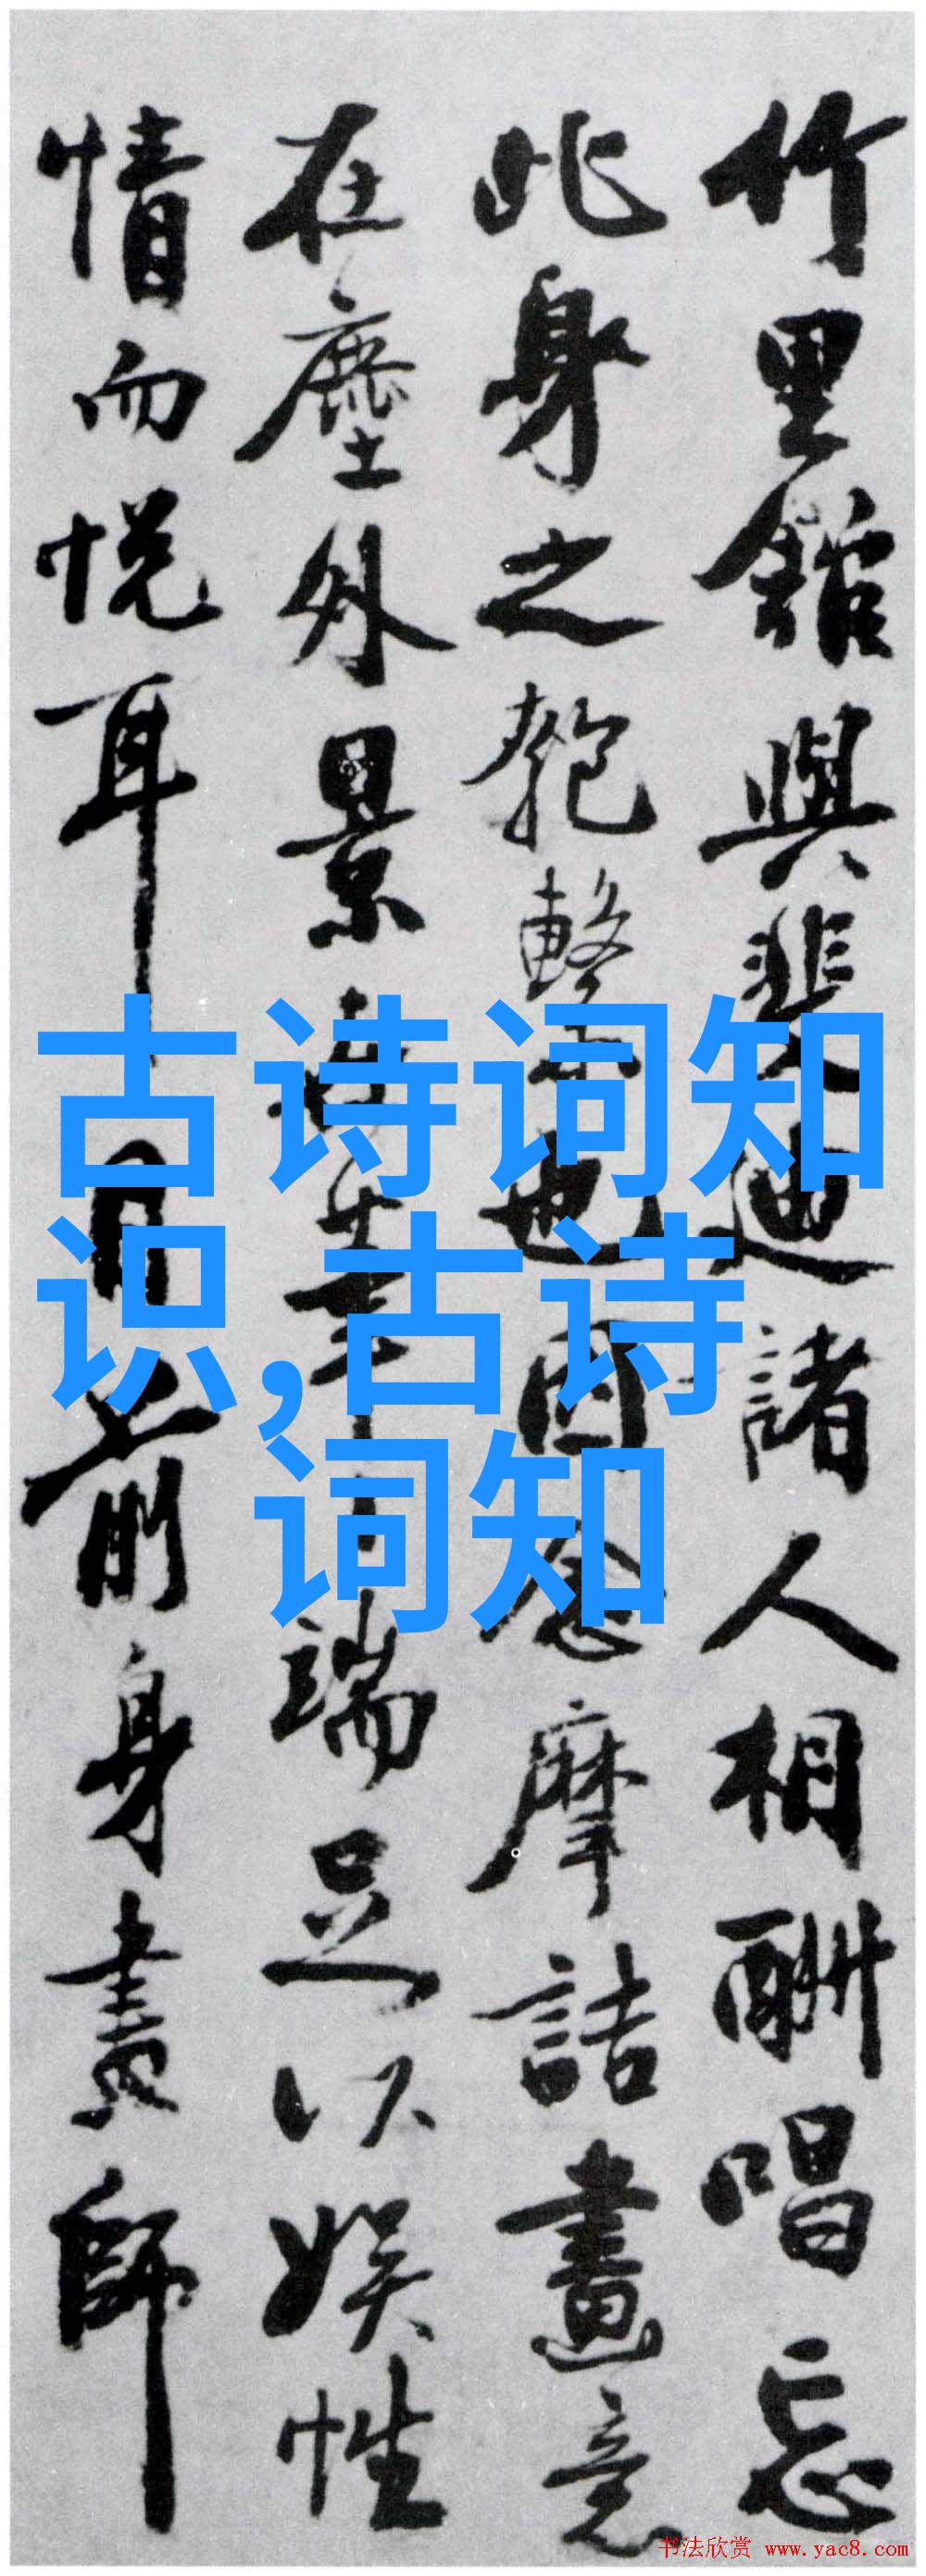 竹里館與裴迪諸人相酬唱忘
此身之匏繫也因念摩詰畫意
在塵外景在筆端足以娛性
情而悅耳目前身畫師
古诗词知
识,古诗
词知
书法欣赏 www.yac8.com